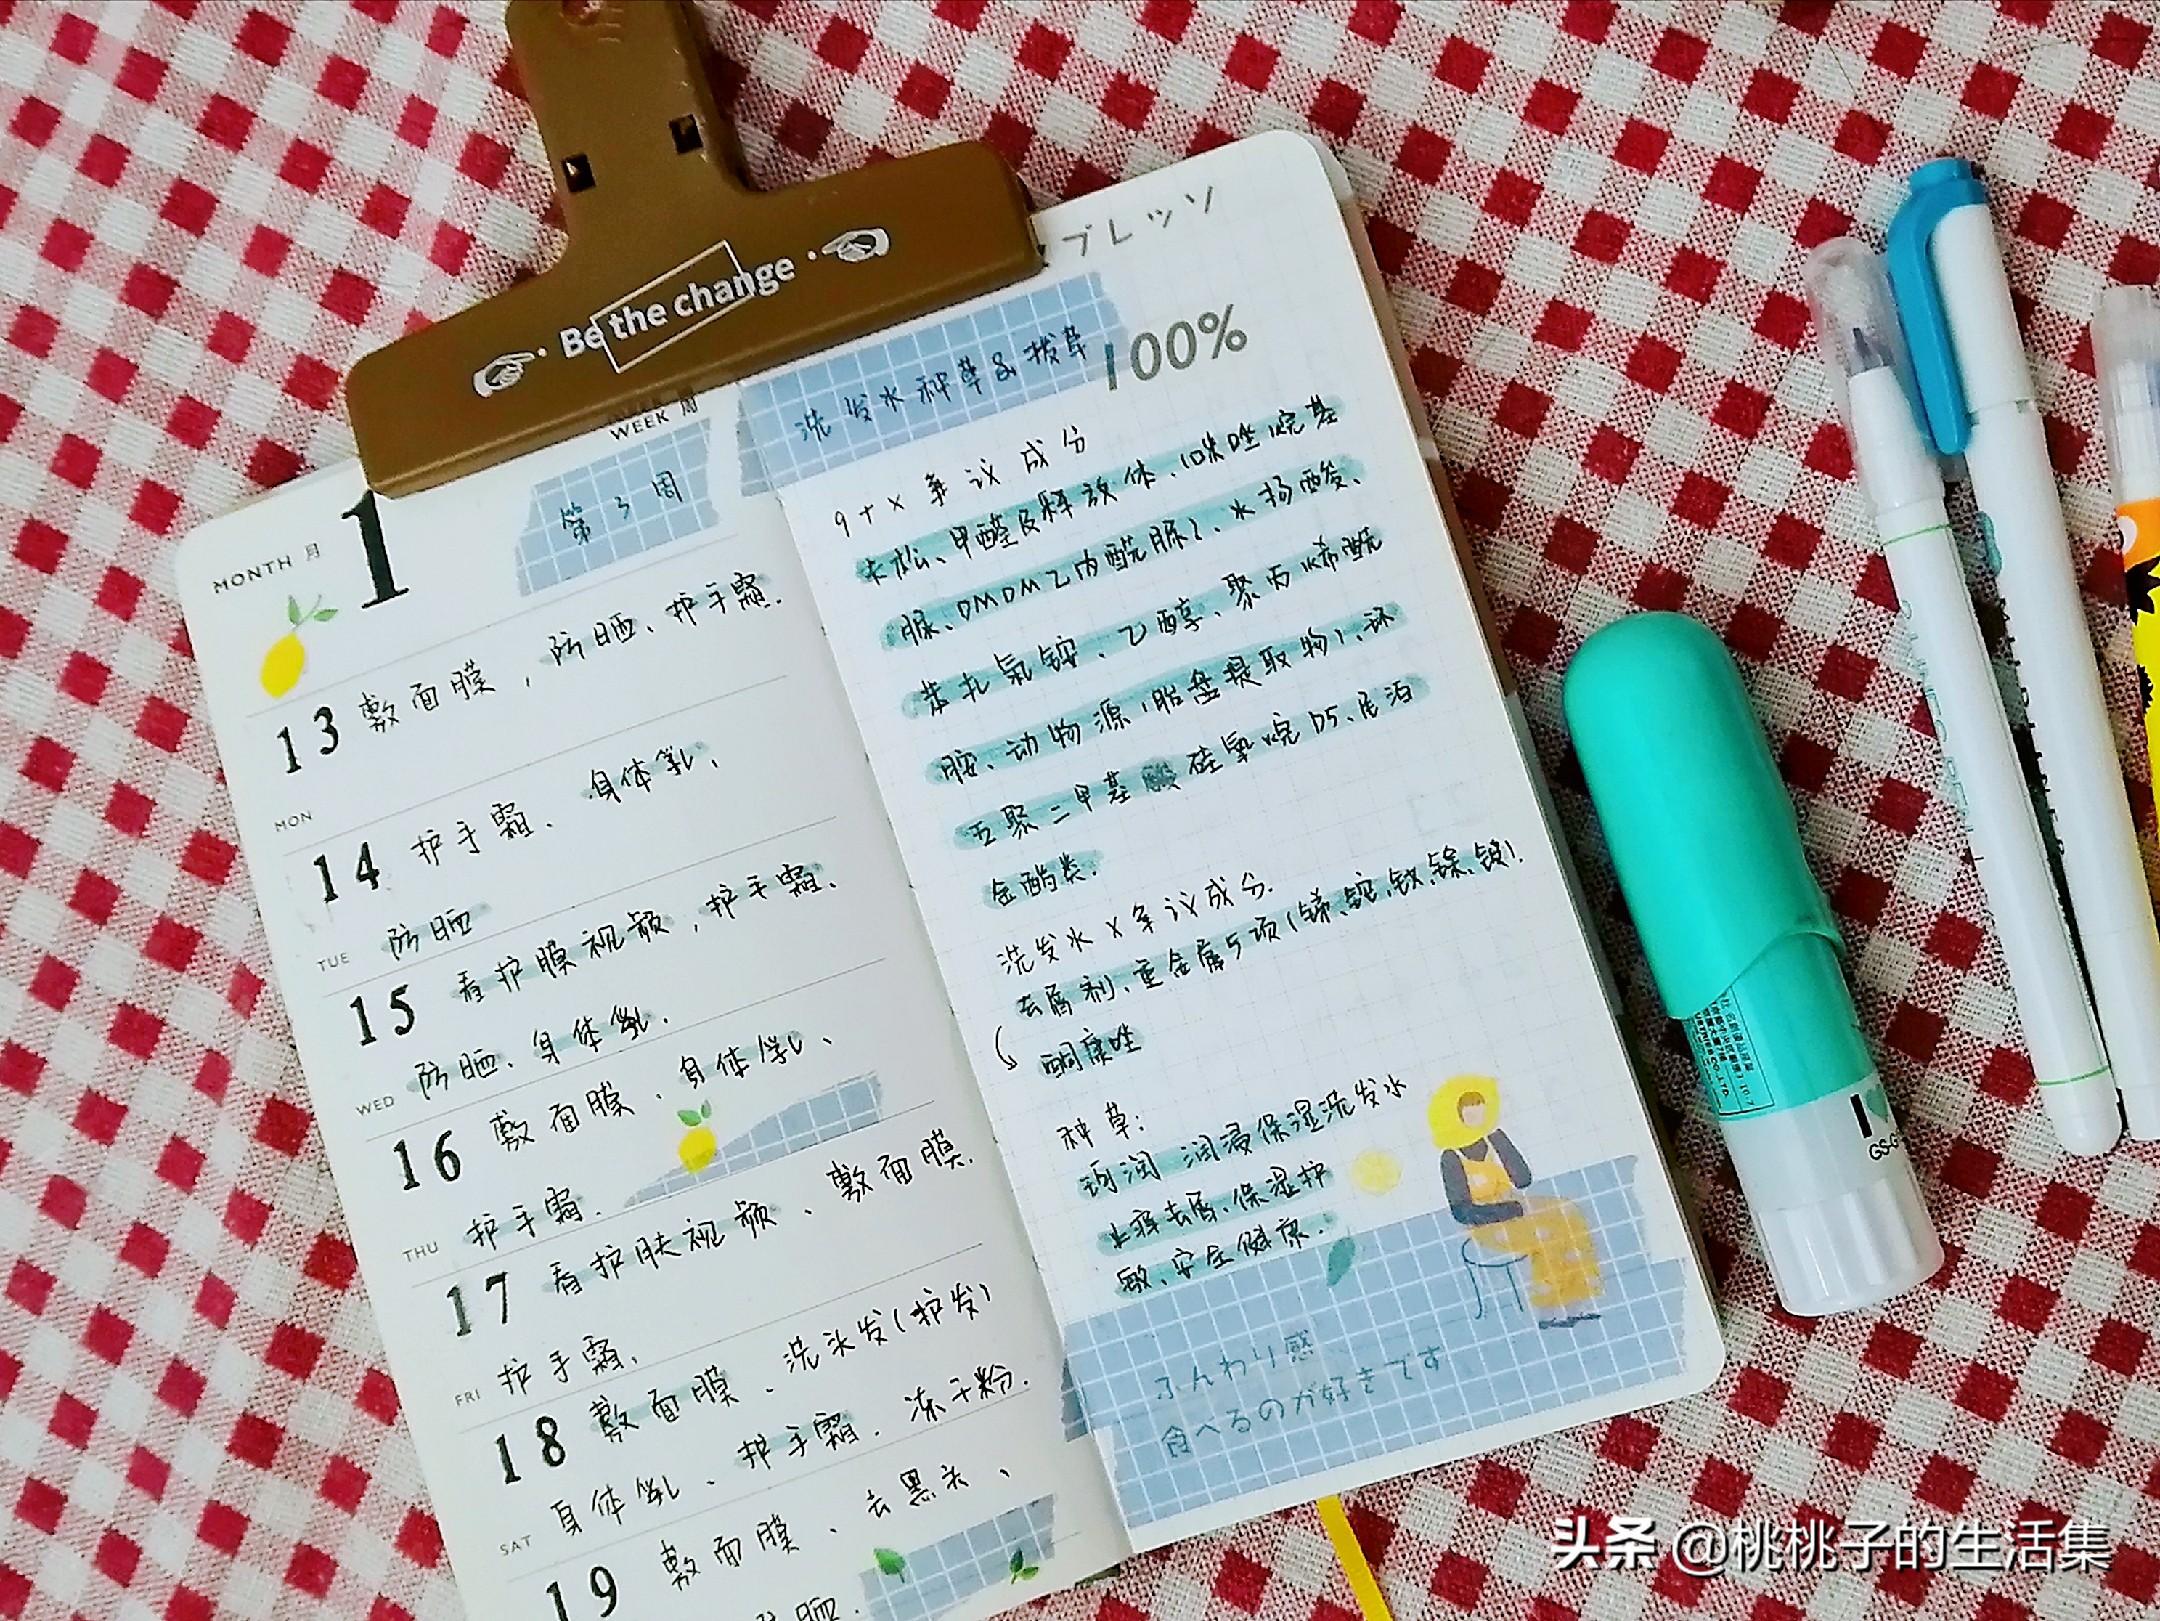 Be the change
WEEK 周
第3周
MONTH 月
1
13 敷面膜，防晒、护手霜.
MON
14 护手霜、身体乳、
防晒
TUE
15 看护膜视频，护手霜、
防晒、身体乳.
WED
16 敷面膜、身体乳、
护手霜.
THU
17 看护肤视频、敷面膜.
护手霜.
FRI
18 敷面膜、洗头发(护发)
身体乳、护手霜、冻干粉.
SAT
19 敷面膜、去黑头、
防晒.
プレッソ
洗发水种草&拔草
100%
9+X争议成分
卡松、甲醛及释放体、(咪唑烷基
脲、DMDM乙内酰脲)、水杨酸、
苯扎氯铵、乙醇、聚丙烯酰
胺、动物源(胎盘提取物)、环
五聚二甲基硅氧烷D5、
金酯类.
洗发水X争议成分.
去屑剂、重金属5项(锑、铊、钕、镓、锁).
酮康唑
种草:
润 润浸保湿洗发水
止痒去屑、保湿护
敏、安全健康.
ふんわり感
食べるのが好きです
头条 @桃桃子的生活集